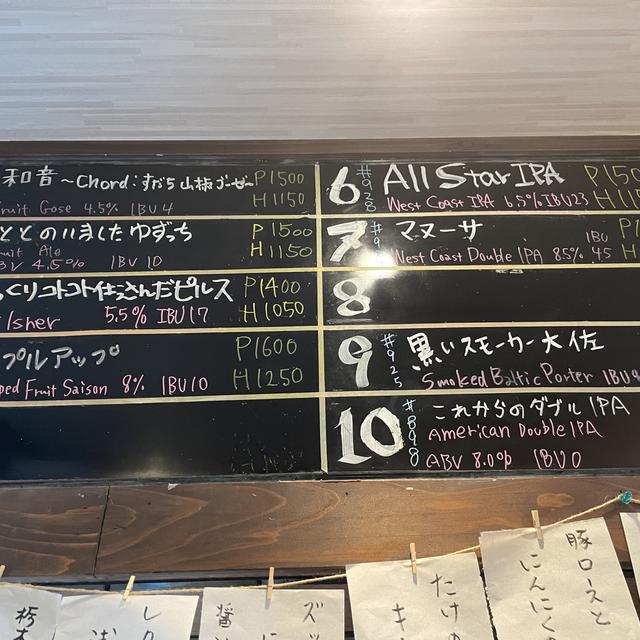 和音 ~Chord:すだち山椒ゴーゼー P1500
Fruit Gose 4.5% IBU4 H1150
ととのいました ゆずっち P1500
Fruit Ale
ABV 4.5% IBU10 H1150
くりコトコト仕込さんだピルス P1400
5.5% IBU17 H1050
プルアップ P1600
Fruit Saison 8% IBU10 H1250
6 #928 All Star IPA
West Coast IPA 6.5% IBU23
7 マヌーサ
West Coast Double IPA 8.5% IBU 45 H
8
9 #925 黒いスモーカー大佐
Smoked Baltic Porter IBU
10 #898 これからのダブルIPA
American Double IPA
ABV 8.0% IBU0
豚ロースと
にんにく
たけの
キ
ズッ
に
醤